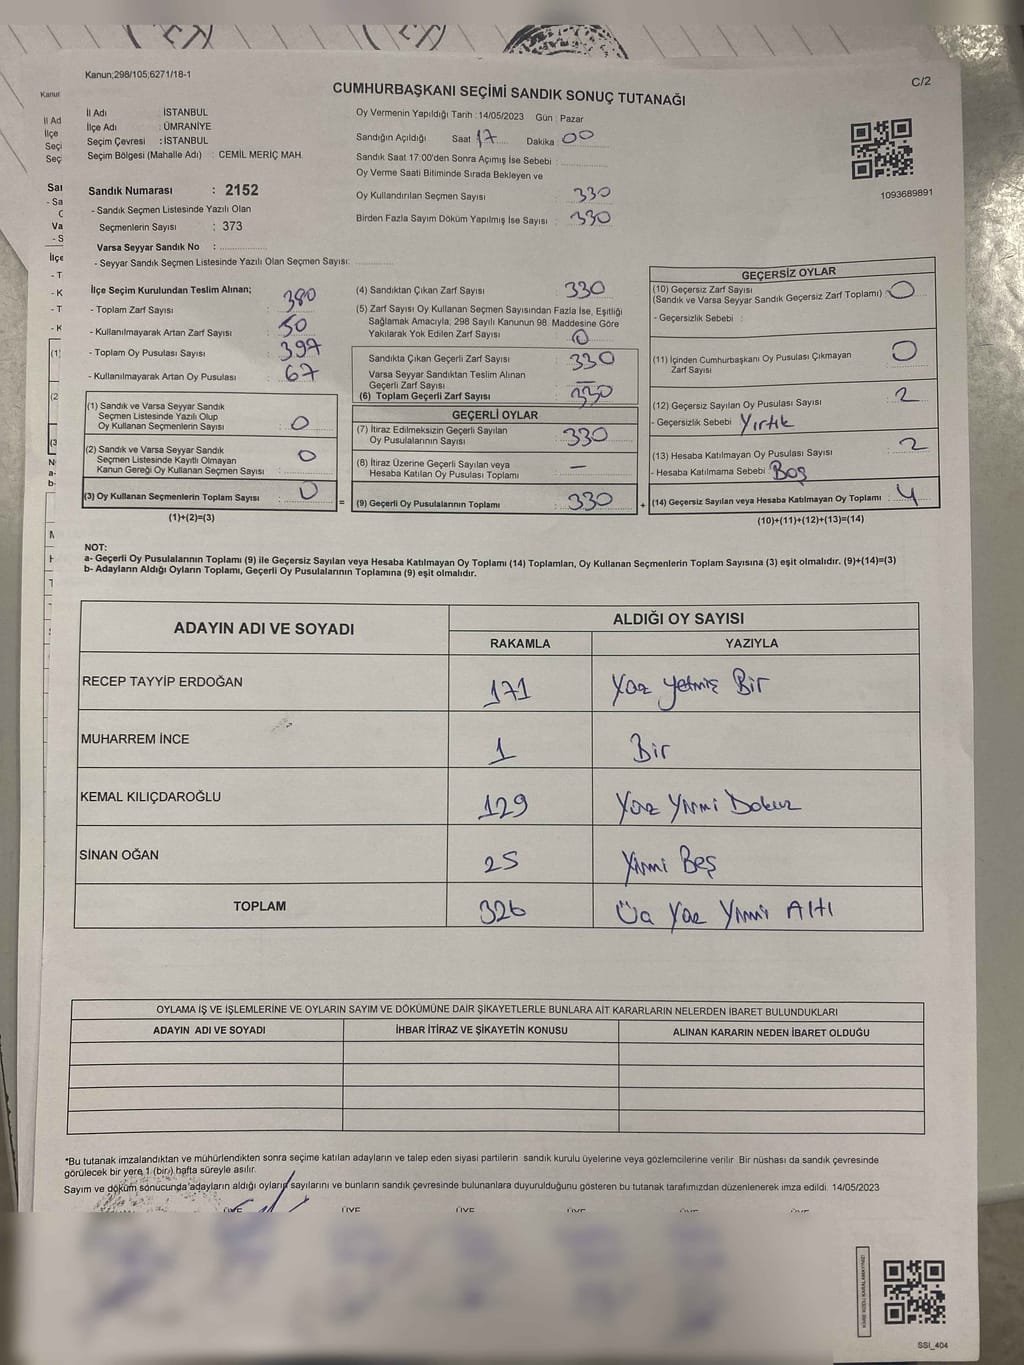 Kanun;298/105;6271/18-1
C/2
CUMHURBAŞKANI SEÇİMİ SANDIK SONUÇ TUTANAĞI
İl Adı : İSTANBUL
İlçe Adı : ÜMRANİYE
Seçim Çevresi : İSTANBUL
Seçim Bölgesi (Mahalle Adı) : CEMİL MERİÇ MAH.
Sandık Numarası : 2152
- Sandık Seçmen Listesinde Yazılı Olan
Seçmenlerin Sayısı : 373
Varsa Seyyar Sandık No :
- Seyyar Sandık Seçmen Listesinde Yazılı Olan Seçmen Sayısı:
Oy Vermenin Yapıldığı Tarih : 14/05/2023 Gün : Pazar
Sandığın Açıldığı Saat 17 Dakika 00
Sandık Saat 17:00'den Sonra Açımış İse Sebebi :
Oy Verme Saati Bitiminde Sırada Bekleyen ve
Oy Kullandırılan Seçmen Sayısı : 330
Birden Fazla Sayım Döküm Yapılmış İse Sayısı : 330
1093689891
İlçe Seçim Kurulundan Teslim Alınan;
- Toplam Zarf Sayısı : 380
- Kullanılmayarak Artan Zarf Sayısı : 50
- Toplam Oy Pusulası Sayısı : 397
- Kullanılmayarak Artan Oy Pusulası : 67
(1) Sandık ve Varsa Seyyar Sandık
Seçmen Listesinde Yazılı Olup
Oy Kullanan Seçmenlerin Sayısı : 0
(2) Sandık ve Varsa Seyyar Sandık
Seçmen Listesinde Kayıtlı Olmayan
Kanun Gereği Oy Kullanan Seçmen Sayısı : 0
(3) Oy Kullanan Seçmenlerin Toplam Sayısı : 0
(1)+(2)=(3)
(4) Sandıktan Çıkan Zarf Sayısı : 330
(5) Zarf Sayısı Oy Kullanan Seçmen Sayısından Fazla İse, Eşitliği
Sağlamak Amacıyla, 298 Sayılı Kanunun 98. Maddesine Göre
Yakılarak Yok Edilen Zarf Sayısı : 0
Sandıkta Çıkan Geçerli Zarf Sayısı : 330
Varsa Seyyar Sandıktan Teslim Alınan
Geçerli Zarf Sayısı : —
(6) Toplam Geçerli Zarf Sayısı : 330
GEÇERLİ OYLAR
(7) İtiraz Edilmeksizin Geçerli Sayılan
Oy Pusulalarının Sayısı : 330
(8) İtiraz Üzerine Geçerli Sayılan veya
Hesaba Katılan Oy Pusulası Toplamı : —
= (9) Geçerli Oy Pusulalarının Toplamı : 330 +
GEÇERSİZ OYLAR
(10) Geçersiz Zarf Sayısı
(Sandık ve Varsa Seyyar Sandık Geçersiz Zarf Toplamı) : 0
- Geçersizlik Sebebi :
(11) İçinden Cumhurbaşkanı Oy Pusulası Çıkmayan
Zarf Sayısı : 0
(12) Geçersiz Sayılan Oy Pusulası Sayısı : 2
- Geçersizlik Sebebi : Yırtık
(13) Hesaba Katılmayan Oy Pusulası Sayısı : 2
- Hesaba Katılmama Sebebi : Boş
(14) Geçersiz Sayılan veya Hesaba Katılmayan Oy Toplamı : 4
(10)+(11)+(12)+(13)=(14)
NOT:
a- Geçerli Oy Pusulalarının Toplamı (9) ile Geçersiz Sayılan veya Hesaba Katılmayan Oy Toplamı (14) Toplamları, Oy Kullanan Seçmenlerin Toplam Sayısına (3) eşit olmalıdır. (9)+(14)=(3)
b- Adayların Aldığı Oyların Toplamı, Geçerli Oy Pusulalarının Toplamına (9) eşit olmalıdır.
ADAYIN ADI VE SOYADI
ALDIĞI OY SAYISI
RAKAMLA YAZIYLA
RECEP TAYYİP ERDOĞAN 171 Yüz Yetmiş Bir
MUHARREM İNCE 1 Bir
KEMAL KILIÇDAROĞLU 129 Yüz Yirmi Dokuz
SİNAN OĞAN 25 Yirmi Beş
TOPLAM 326 Üç Yüz Yirmi Altı
OYLAMA İŞ VE İŞLEMLERİNE VE OYLARIN SAYIM VE DÖKÜMÜNE DAİR ŞİKAYETLERLE BUNLARA AİT KARARLARIN NELERDEN İBARET BULUNDUKLARI
ADAYIN ADI VE SOYADI İHBAR İTİRAZ VE ŞİKAYETİN KONUSU ALINAN KARARIN NEDEN İBARET OLDUĞU
*Bu tutanak imzalandıktan ve mühürlendikten sonra seçime katılan adayların ve talep eden siyasi partilerin sandık kurulu üyelerine veya gözlemcilerine verilir. Bir nüshası da sandık çevresinde
görülecek bir yere 1 (bir) hafta süreyle asılır.
Sayım ve döküm sonucunda adayların aldığı oyların sayılarını ve bunların sandık çevresinde bulunanlara duyurulduğunu gösteren bu tutanak tarafımızdan düzenlenerek imza edildi. 14/05/2023
ÜYE ÜYE ÜYE ÜYE ÜYE ÜYE
SSİ_404